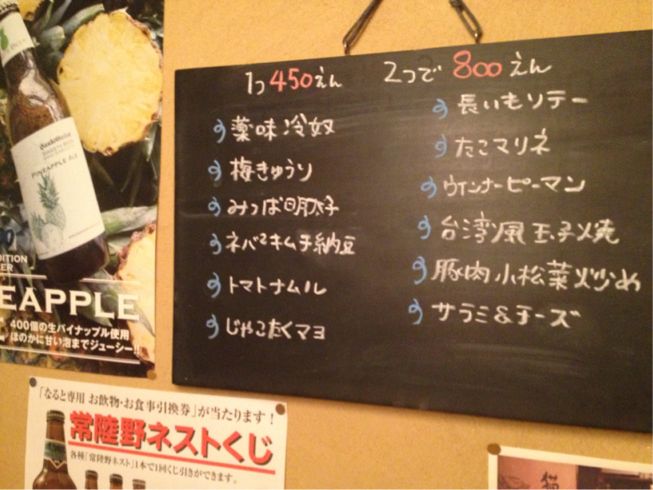 1つ450えん 2つで800えん
薬味冷奴
梅きゅうり
みつば明太子
ネバ2キムチ納豆
トマトナムル
じゃこたくマヨ
長いもソテー
たこマリネ
ウインナーピーマン
台湾風玉子焼
豚肉小松菜炒め
サラミ&チーズ
PINEAPPLE ALE
EAPPLE
400個の生パイナップル使用
ほのかに甘い泡までジューシー!!
「なると専用 お飲物・お食事引換券」が当たります!
常陸野ネストくじ
各種「常陸野ネスト」1本で1回くじ引きができます。
猫